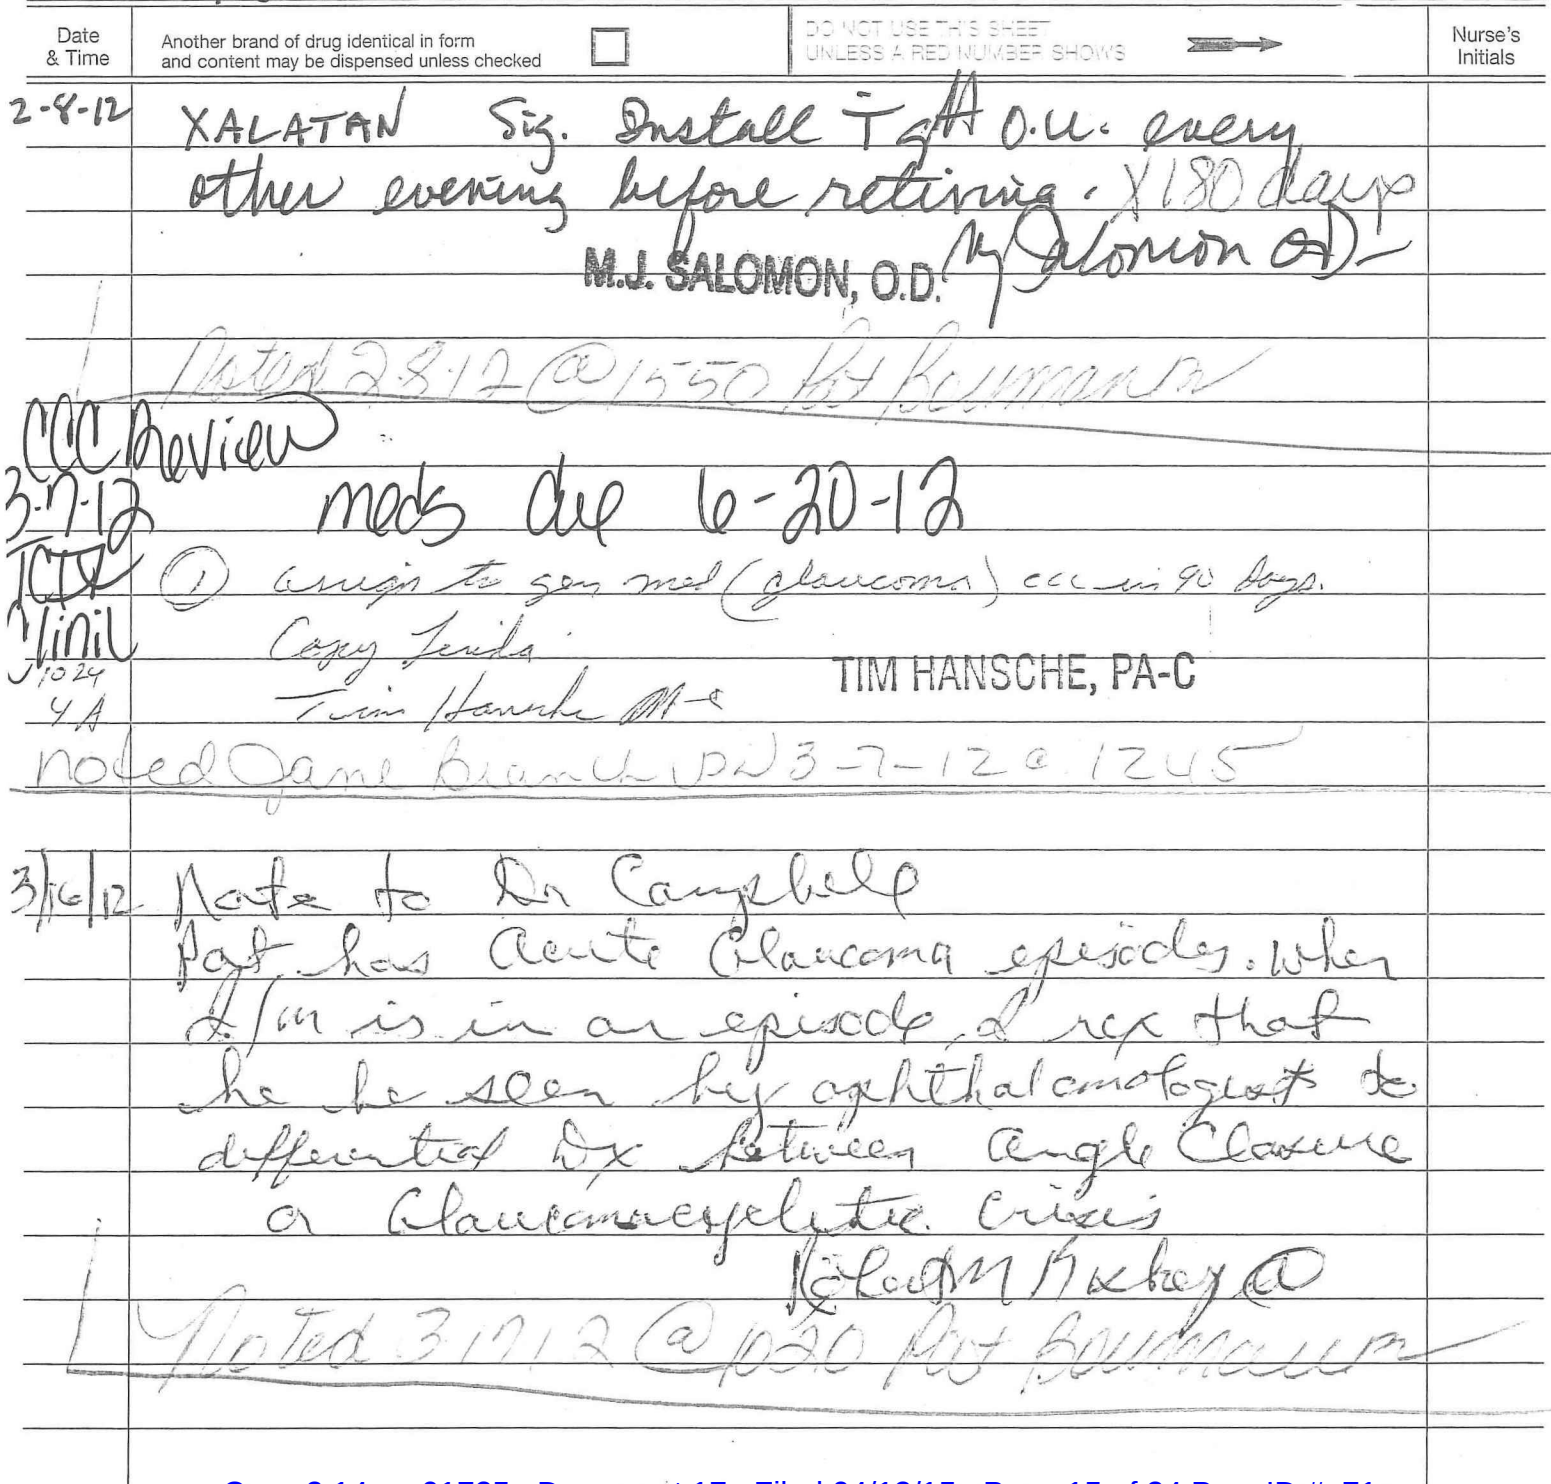 Date & Time
Another brand of drug identical in form and content may be dispensed unless checked
DO NOT USE THIS SHEET UNLESS A RED NUMBER SHOWS
Nurse's Initials
2-8-12 XALATAN Sig. Install T gtt O.U. every
other evening before retiring. X180 days
M.J. SALOMON, O.D. MJ Salomon OD
Noted 2-8-12 @ 1550 Pat Bowman
CCC Review
3-7-12 meds due 6-20-12
① assign to gen med (glaucoma) ccc in 90 days.
Clinic
1024
TIM HANSCHE, PA-C
4A Tim Hansche PA-C
noted Jane Branch 3-7-12 @ 1245
3/16/12 Note to Dr Campbell
Pat has Acute Glaucoma episodes. When
I/m is in an episode, I rex that
he be seen by ophthalamologist to
differential Dx between Angle Closure
or crisis
Noted 3 17 12 @ 1020 Pat Bowman